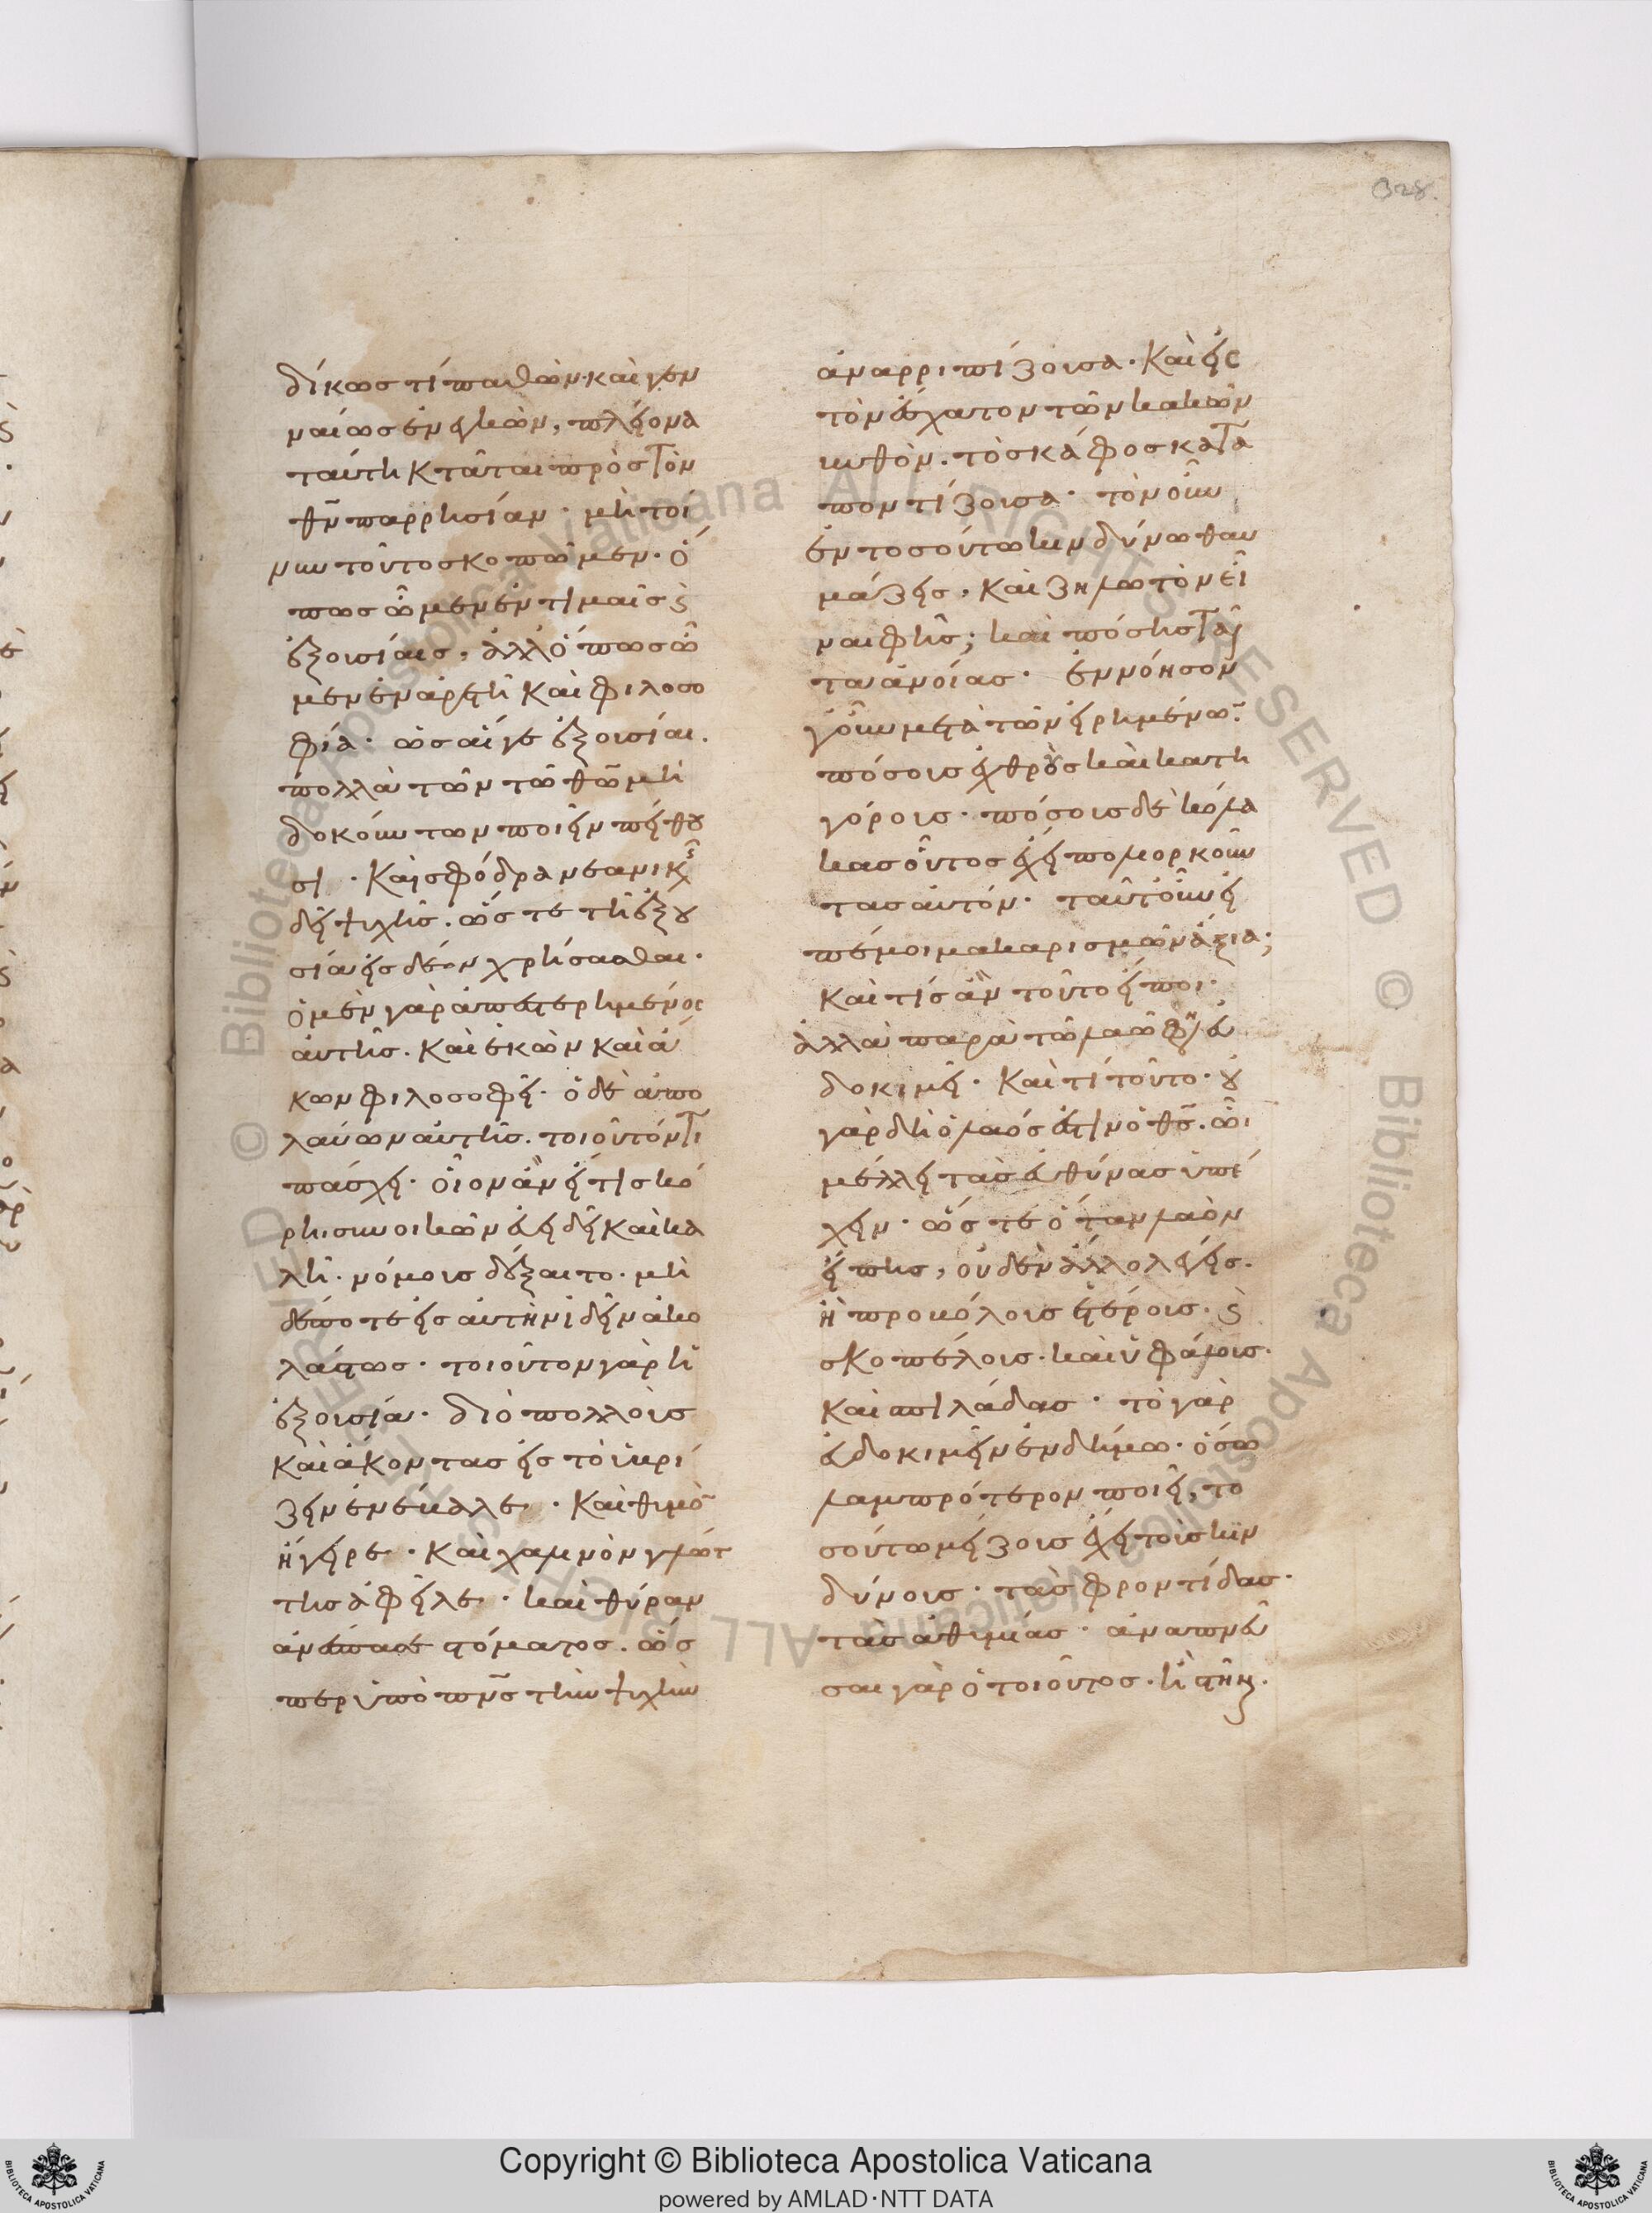 328.
δίκωσ τί παθὼν· καὶ γεν
ναίωσ ἐνεγκὼν, πλείονα
ταύτη κτᾶται πρὸσ τὸν
θν̄ παρρησίαν· μὴ τοί
νυν τοῦτο σκοπῶμεν· ὅ
πωσ ὦμεν ἐν τιμαῖσ ϛ
ἐξουσίαισ, ἀλλ' ὅπωσ ὦ
μεν ἐν ἀρετῆ καὶ φιλοσο
φία· ὡσ αἵγε ἐξουσίαι.
πολλὰ τῶν τῶ θῶ̄ μὴ
δοκούντων ποιεῖν πείθου
σι· καὶ σφόδρα νεανικῆσ
δεῖ ψυχῆσ. ὥστε τῆ ἐξου
σία εἰσ δέον χρήσασθαι·
ὁ μὲν γὰρ ἀπεστερημένοσ
αὐτῆσ. καὶ ἑκὼν καὶ ἄ
κων φιλοσοφεῖ· ὁ δὲ ἀπο
λαύων αὐτῆσ. τοιοῦτόν τι
πάσχει· οἷον ἂν εἴ τισ κό
ρη συνοικῶν εὐειδεῖ καὶ κα
λῆ· νόμουσ δέξαιτο· μη
δέποτε εἰσ αὐτὴν ἰδεῖν ἀκο
λάστωσ· τοιοῦτον γὰρ ἡ
ἐξουσία· διὸ πολλοὺσ
καὶ ἄκοντασ εἰσ τὸ ὑβρί
ζειν ἐνέβαλε· καὶ θυμὸ̄
ἤγειρε· καὶ χαλινὸν γλώτ
τησ ἀφεῖλε· καὶ θύραν
ἀνέσπασε στόματοσ. ὥσ
περ ὑπὸ πνσ̄ τὴν ψυχὴν
ἀναρριπίζουσα· καὶ εἰσ
τὸν ἔσχατον τῶν κακῶν
βυθὸν. τὸ σκάφοσ κατα
ποντίζουσα· τὸν οὖν
ἐν τοσούτω κινδύνω θαυ
μάζεισ, καὶ ζηλωτὸν εἶ
ναι φῆσ; καὶ πόσησ ταῦ
τα ἀνοίασ· ἐννόησον
γοῦν μετὰ τῶν εἰρημένω̄·
πόσουσ ἐχθροὺσ καὶ κατη
γόρουσ· πόσουσ δὲ κόλα
κασ οὗτοσ ἔχει πολιορκοῦν
τασ αὐτόν· ταῦτ' οὖν εἰ
πέ μοι μακαρισμῶν ἄξια;
καὶ τίσ ἂν τοῦτο εἴποι·
ἀλλὰ παρὰ τῶ λαῶ φη̄ εὐ
δοκιμεῖ· καὶ τί τοῦτο· οὐ
γὰρ δὴ ὁ λαόσ ἐστιν ὁ θσ̄. ὧι
μέλλει τὰσ εὐθύνασ ὑπέ
χειν· ὥστε ὅταν λαὸν
εἴπησ, οὐδὲν ἄλλο λέγεισ.
ἢ προβόλουσ ἑτέρουσ. ϛ
σκοπέλουσ· καὶ ὑφάλουσ·
καὶ σπιλάδασ· τὸ γὰρ
εὐδοκιμεῖν ἐν δήμω· ὅσω
λαμπρότερον ποιεῖ, το
σούτω μείζουσ ἔχει τοὺσ κιν
δύνουσ· τὰσ φροντίδασ·
τὰσ ἀθυμίασ· ἀναπνεῦ
σαι γὰρ ὁ τοιοῦτοσ· ἢ στῆν